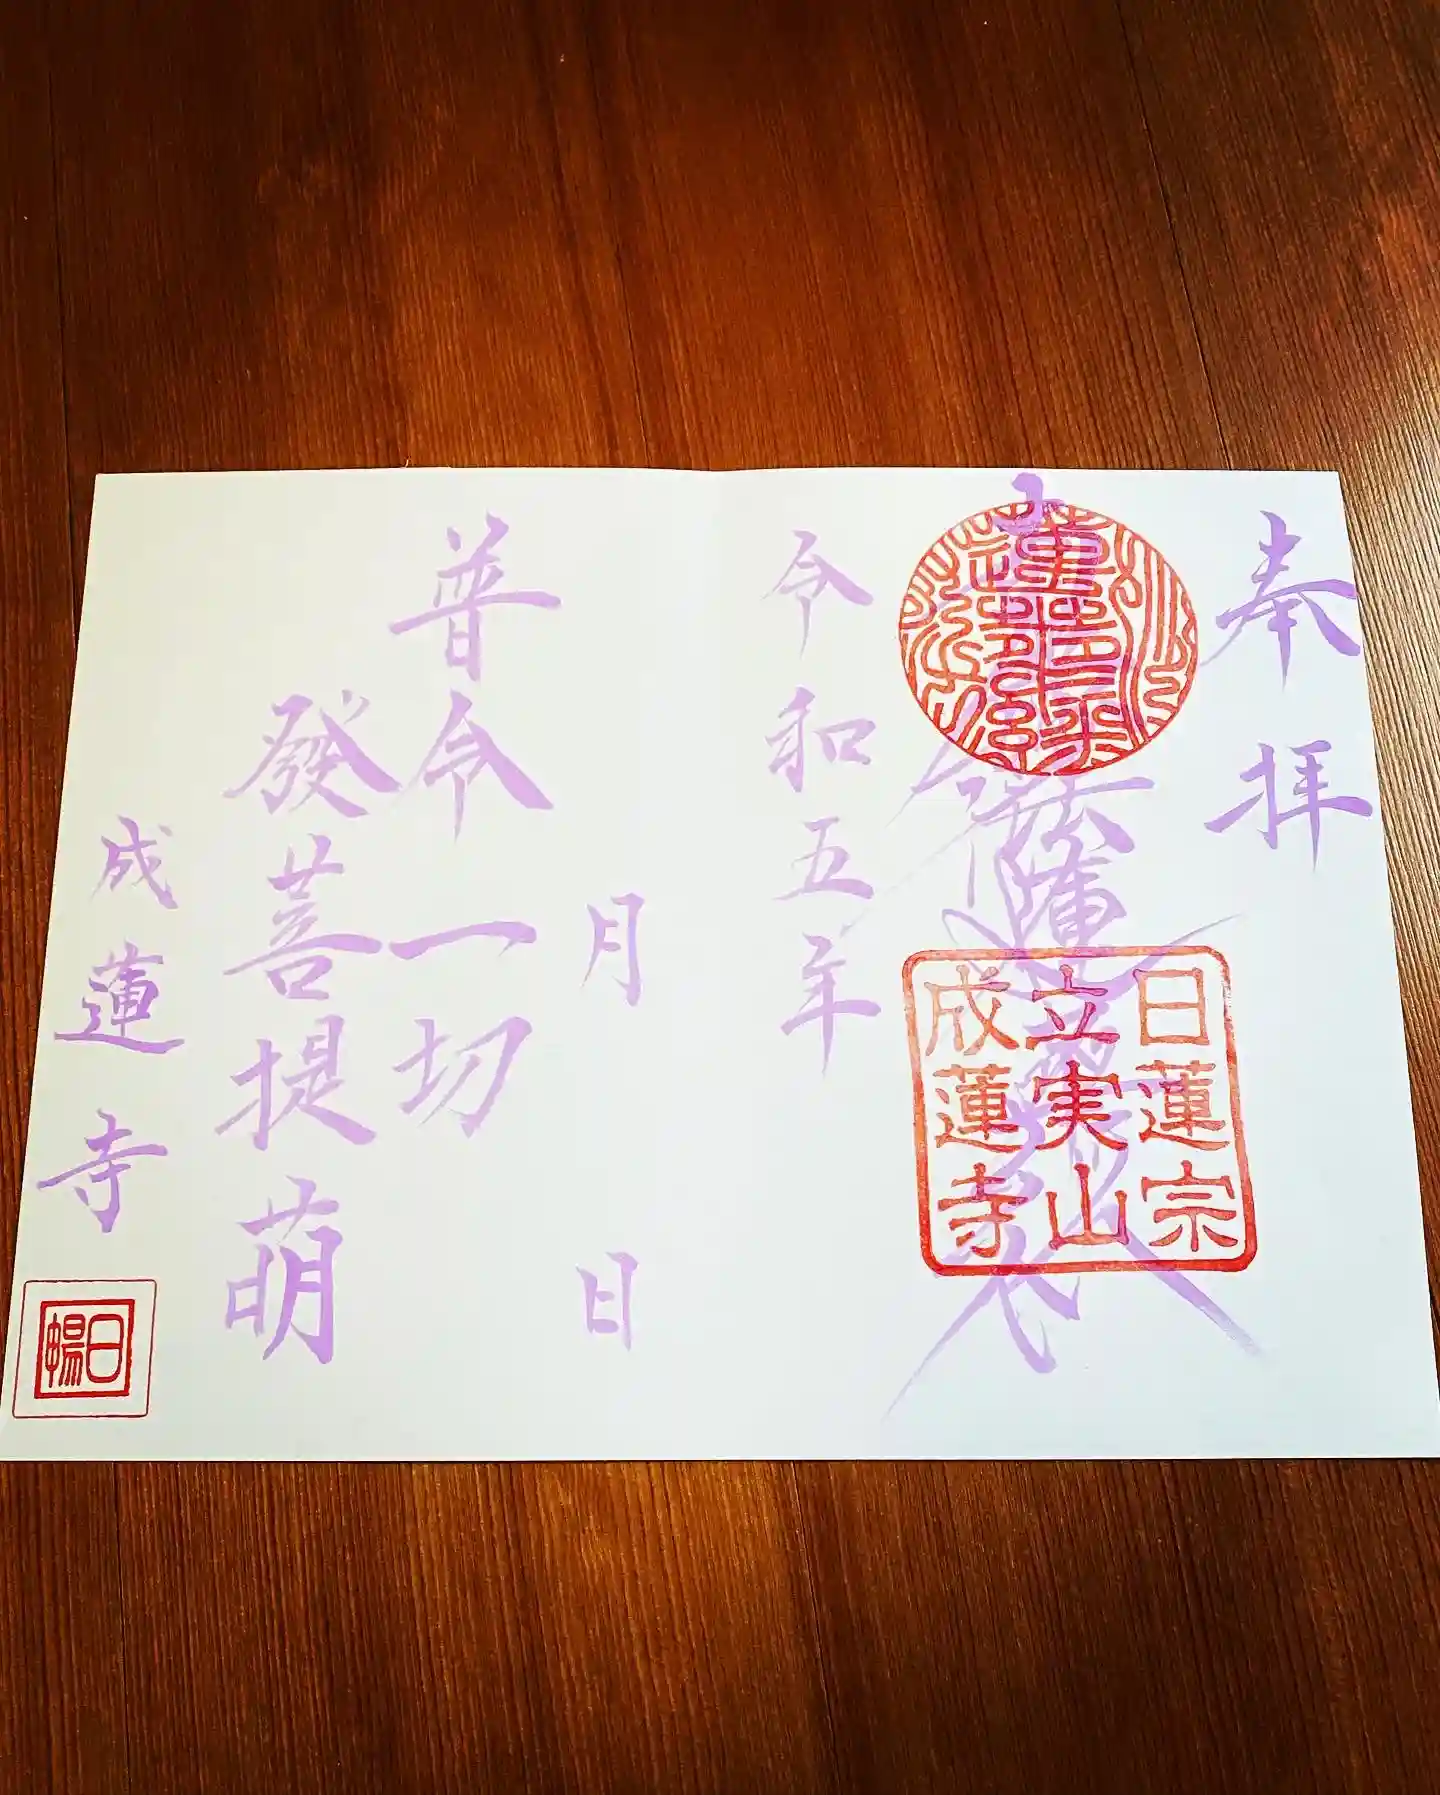 奉拝
日蓮宗
立実山
成蓮寺
令和五年
月 日
普令一切
發菩提萌
成蓮寺
日暢